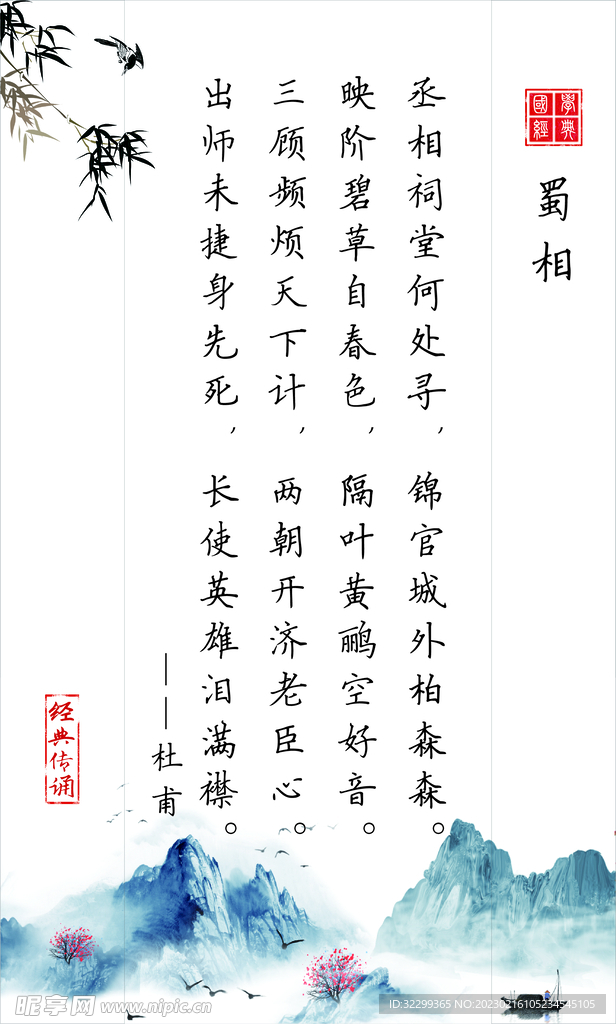 國學經典
蜀相
丞相祠堂何处寻，锦官城外柏森森。
映阶碧草自春色，隔叶黄鹂空好音。
三顾频烦天下计，两朝开济老臣心。
出师未捷身先死，长使英雄泪满襟。
——杜甫
经典传诵
昵享网 www.nipic.cn
ID:32299365 NO:20230216105234545105